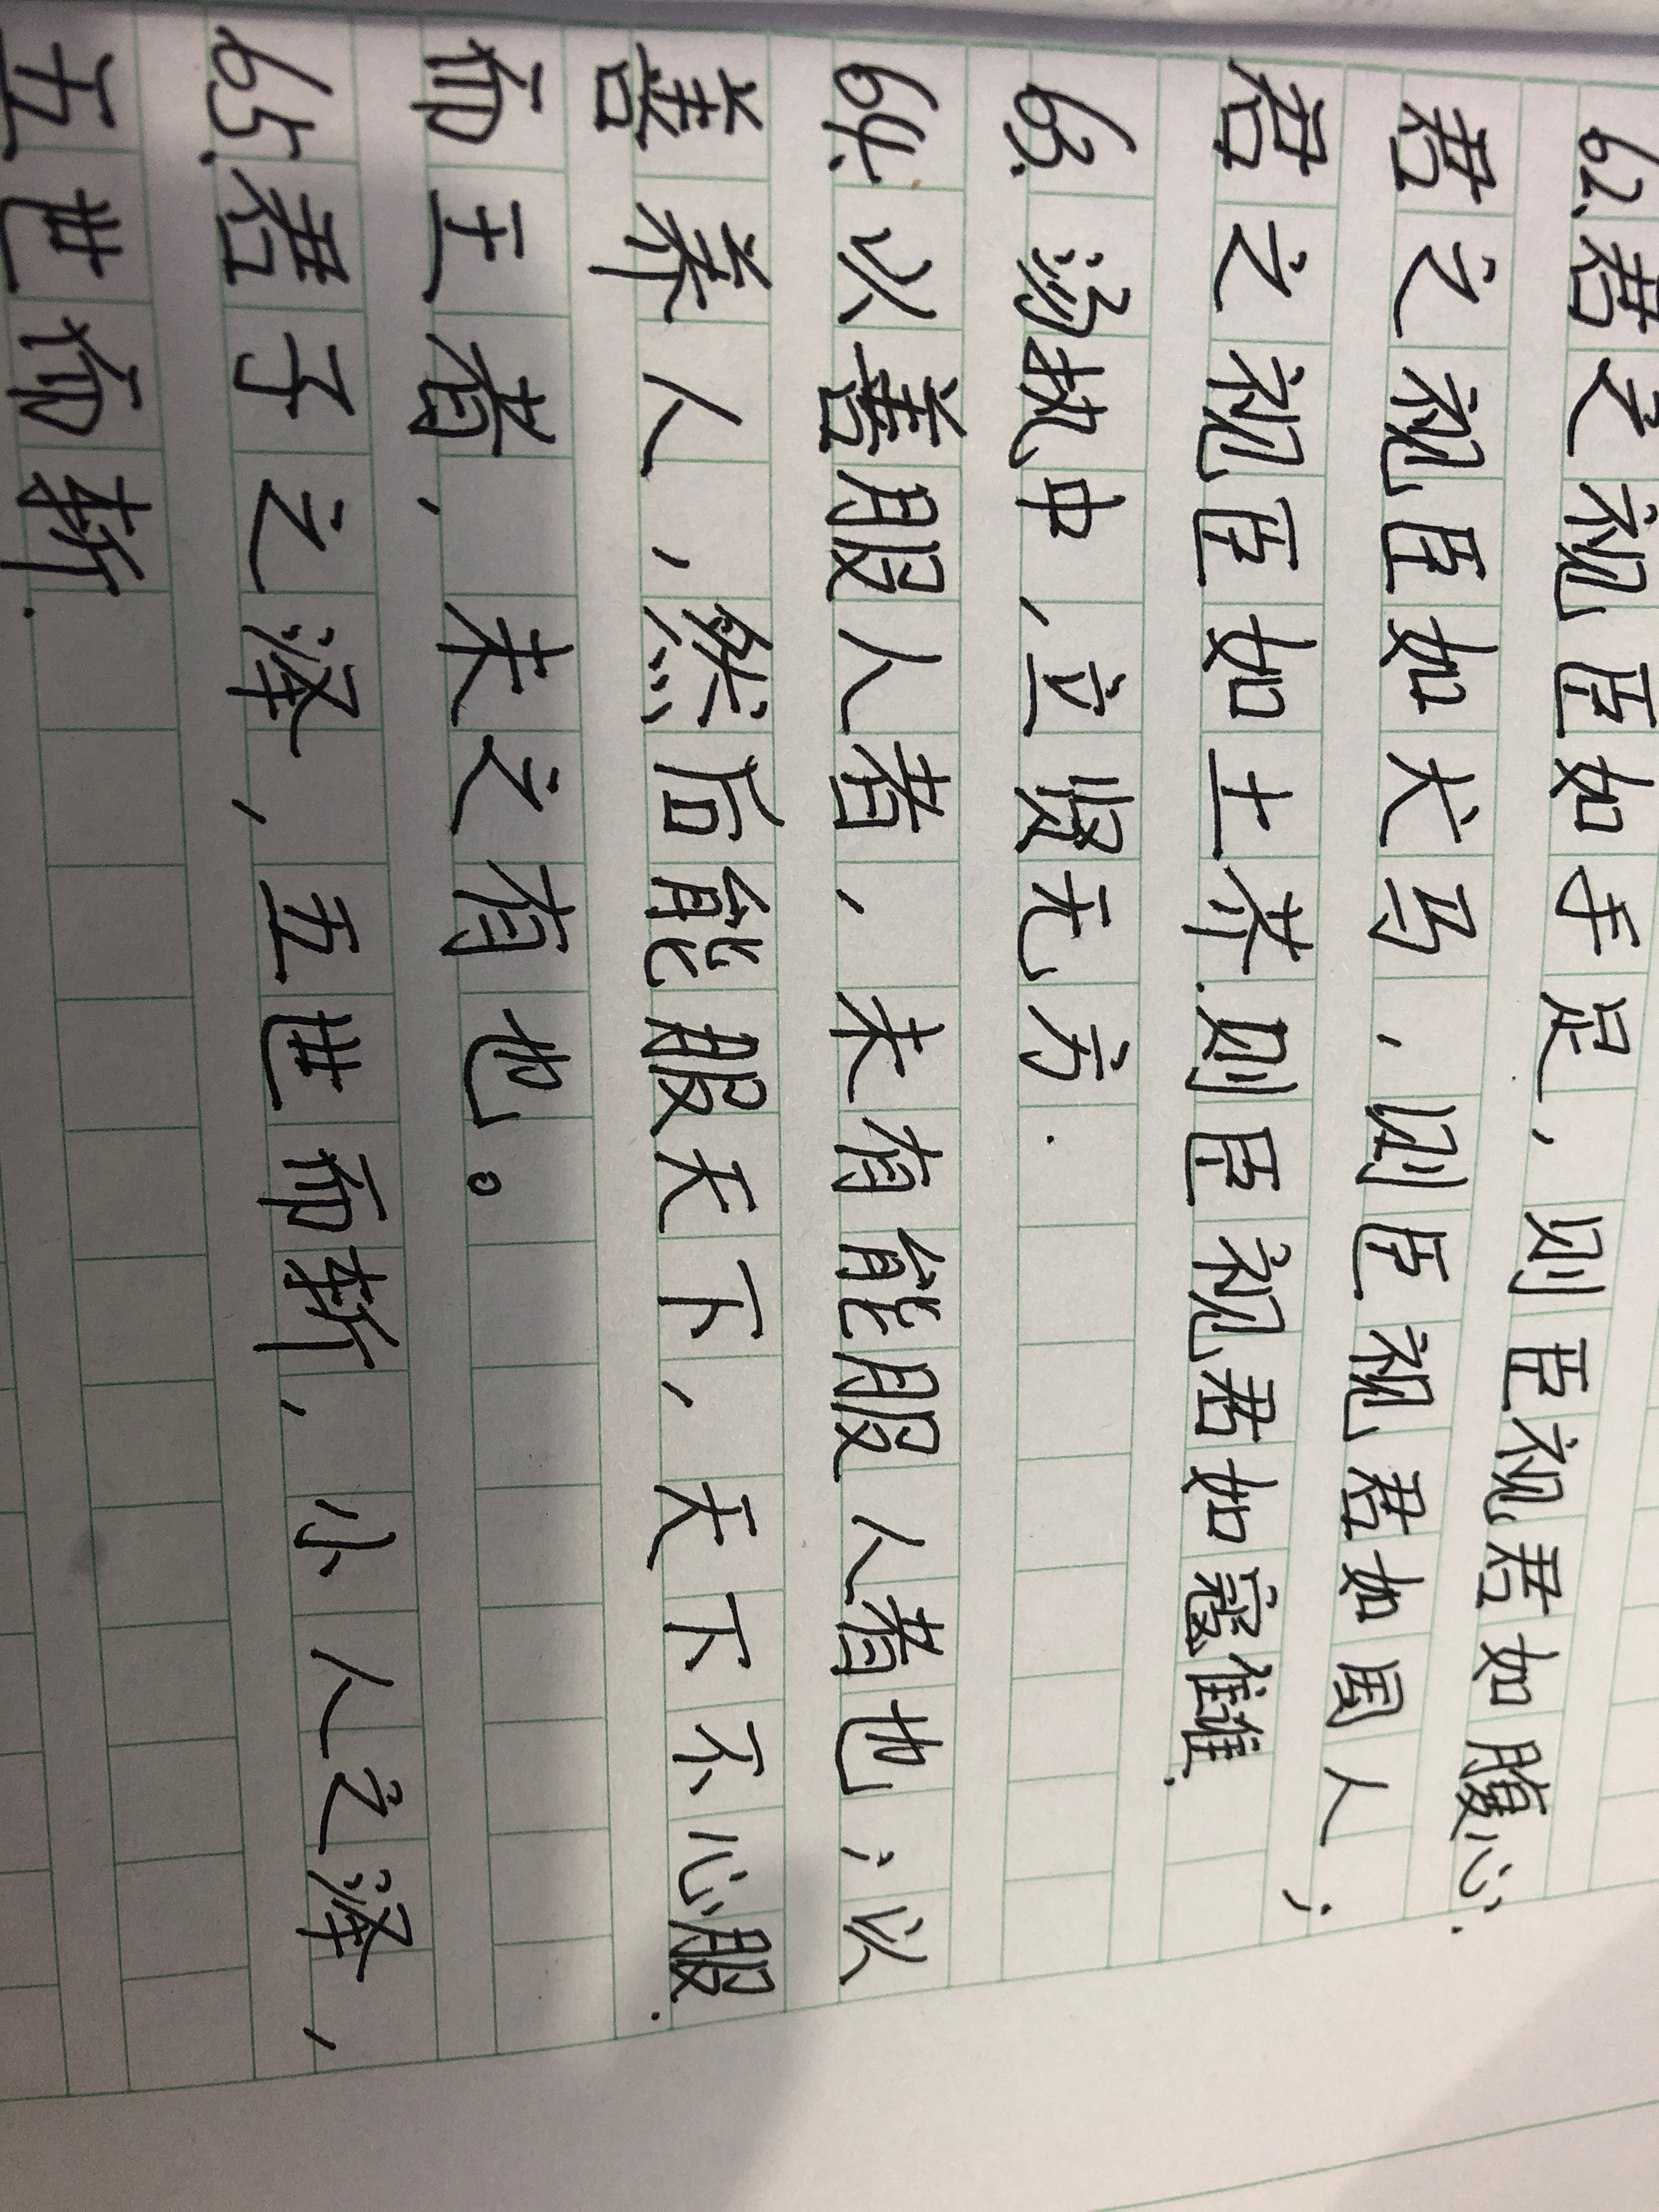 62.君之视臣如手足,则臣视君如腹心.
君之视臣如犬马,则臣视君如国人;
君之视臣如土芥.则臣视君如寇雠.
63.汤执中,立贤无方.
64.以善服人者,未有能服人者也;以
善养人,然后能服天下,天下不心服.
而王者,未之有也。
65.君子之泽,五世而斩,小人之泽,
五世而斩.